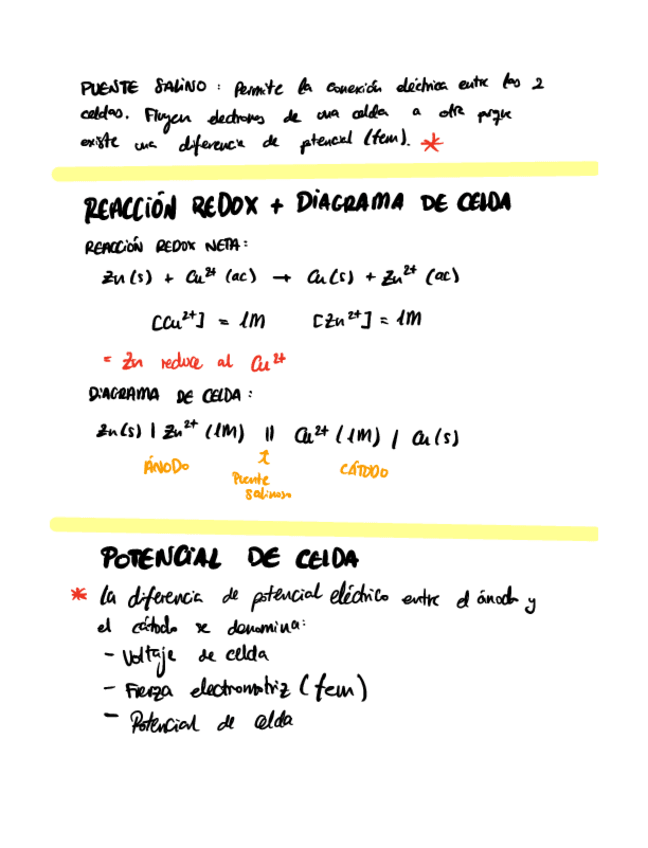 PUENTE SALINO : Permite la conexión eléctrica entre las 2
celdas. Fluyen electrones de una celda a otra porque
existe una diferencia de potencial (fem). *
REACCIÓN REDOX + DIAGRAMA DE CELDA
REACCIÓN REDOX NETA :
Zn(s) + Cu²⁺ (ac) → Cu(s) + Zn²⁺ (ac)
[Cu²⁺] = 1M [Zn²⁺] = 1M
= Zn reduce al Cu²⁺
DIAGRAMA DE CELDA :
Zn(s) | Zn²⁺ (1M) || Cu²⁺ (1M) | Cu(s)
ÁNODO ↑ CÁTODO
Puente
salinoso
POTENCIAL DE CELDA
* La diferencia de potencial eléctrico entre el ánodo y
el cátodo se denomina:
- Voltaje de celda
- Fuerza electromotriz (fem)
- Potencial de celda